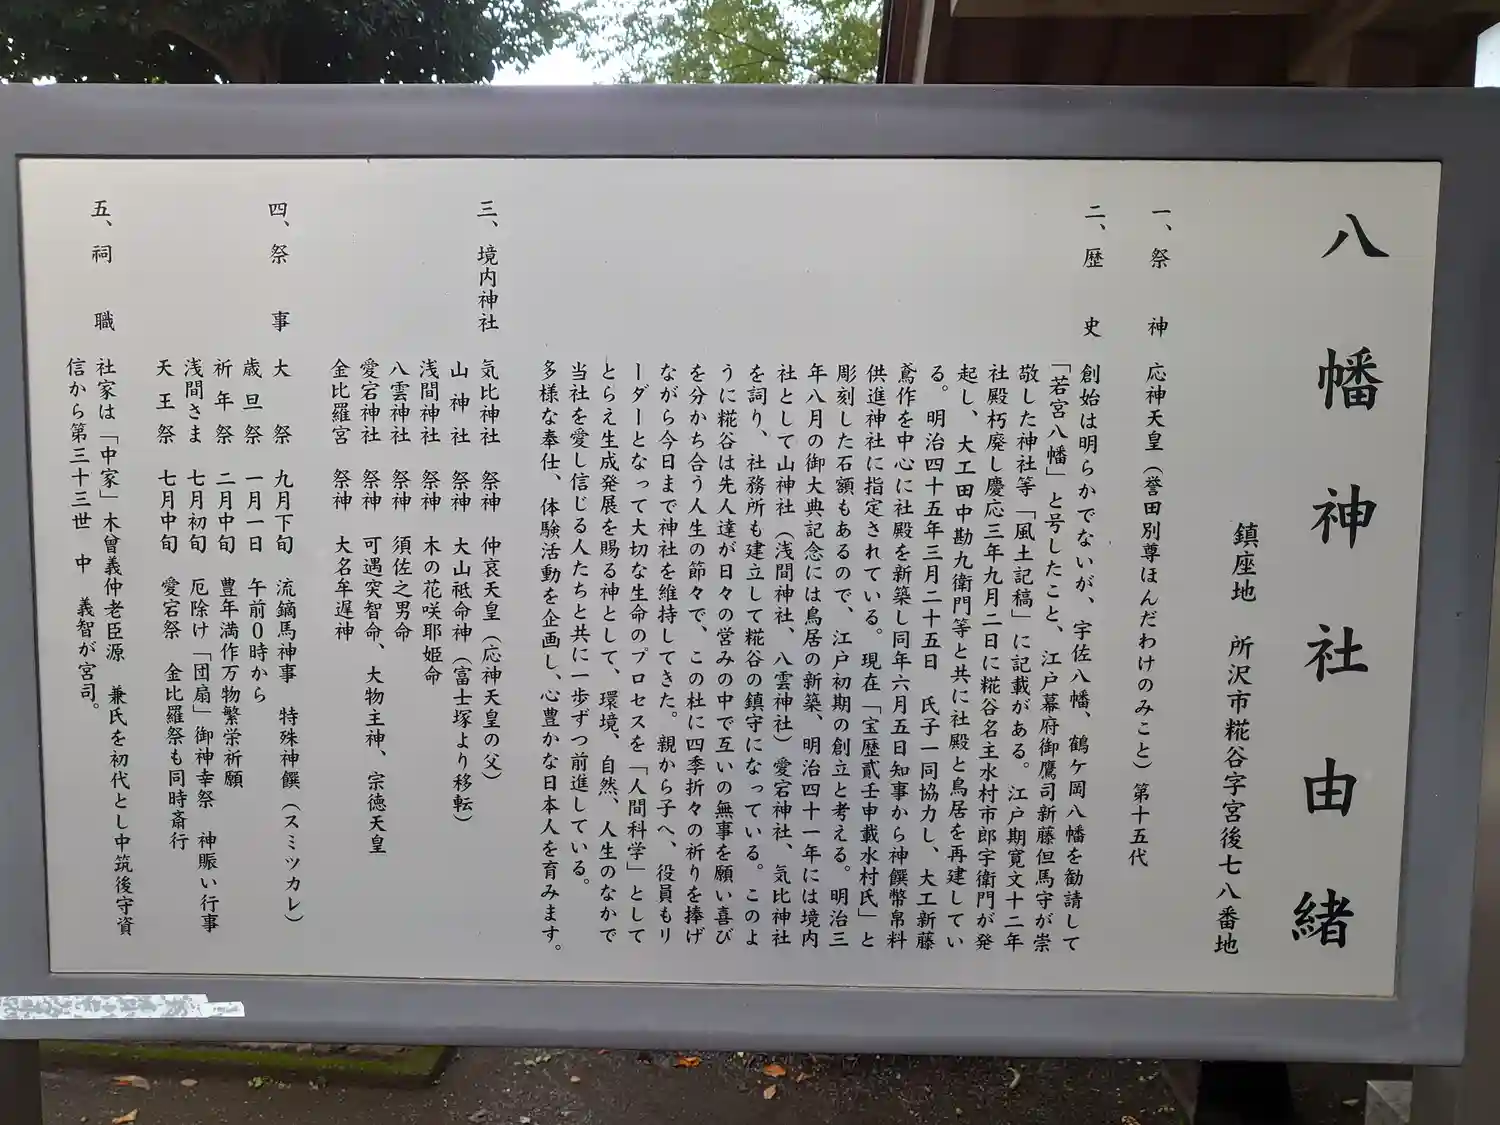 八幡神社由緒
鎮座地 所沢市糀谷字宮後七八番地
一、祭 神 応神天皇(誉田別尊ほんだわけのみこと)第十五代
二、歴 史 創始は明らかでないが、宇佐八幡、鶴ケ岡八幡を勧請して
「若宮八幡」と号したこと、江戸幕府御鷹司新藤但馬守が崇
敬した神社等「風土記稿」に記載がある。江戸期寛文十二年
社殿朽廃し慶応三年九月二日に糀谷名主水村市郎宇衛門が発
起し、大工田中勘九衛門等と共に社殿と鳥居を再建してい
る。明治四十五年三月二十五日 氏子一同協力し、大工新藤
鳶作を中心に社殿を新築し同年六月五日知事から神饌幣帛料
供進神社に指定されている。現在「宝歴貳壬申載水村氏」と
彫刻した石額もあるので、江戸初期の創立と考える。明治三
年八月の御大典記念には鳥居の新築、明治四十一年には境内
社として山神社(浅間神社、八雲神社)愛宕神社、気比神社
を詞り、社務所も建立して糀谷の鎮守になっている。このよ
うに糀谷は先人達が日々の営みの中で互いの無事を願い喜び
を分かち合う人生の節々で、この杜に四季折々の祈りを捧げ
ながら今日まで神社を維持してきた。親から子へ、役員もリ
ーダーとなって大切な生命のプロセスを「人間科学」として
とらえ生成発展を賜る神として、環境、自然、人生のなかで
当社を愛し信じる人たちと共に一歩ずつ前進している。
多様な奉仕、体験活動を企画し、心豊かな日本人を育みます。
三、境内神社 気比神社 祭神 仲哀天皇(応神天皇の父)
山神社 祭神 大山祇命神(富士塚より移転)
浅間神社 祭神 木の花咲耶姫命
八雲神社 祭神 須佐之男命
愛宕神社 祭神 可遇突智命、大物主神、宗徳天皇
金比羅宮 祭神 大名牟遅神
四、祭 事 大 祭 九月下旬 流鏑馬神事 特殊神饌(スミツカレ)
歳旦祭 一月一日 午前0時から
祈年祭 二月中旬 豊年満作万物繁栄祈願
浅間さま 七月初旬 厄除け「団扇」御神幸祭 神賑い行事
天王祭 七月中旬 愛宕祭 金比羅祭も同時斎行
五、祠 職 社家は「中家」木曾義仲老臣源 兼氏を初代とし中筑後守資
信から第三十三世 中 義智が宮司。